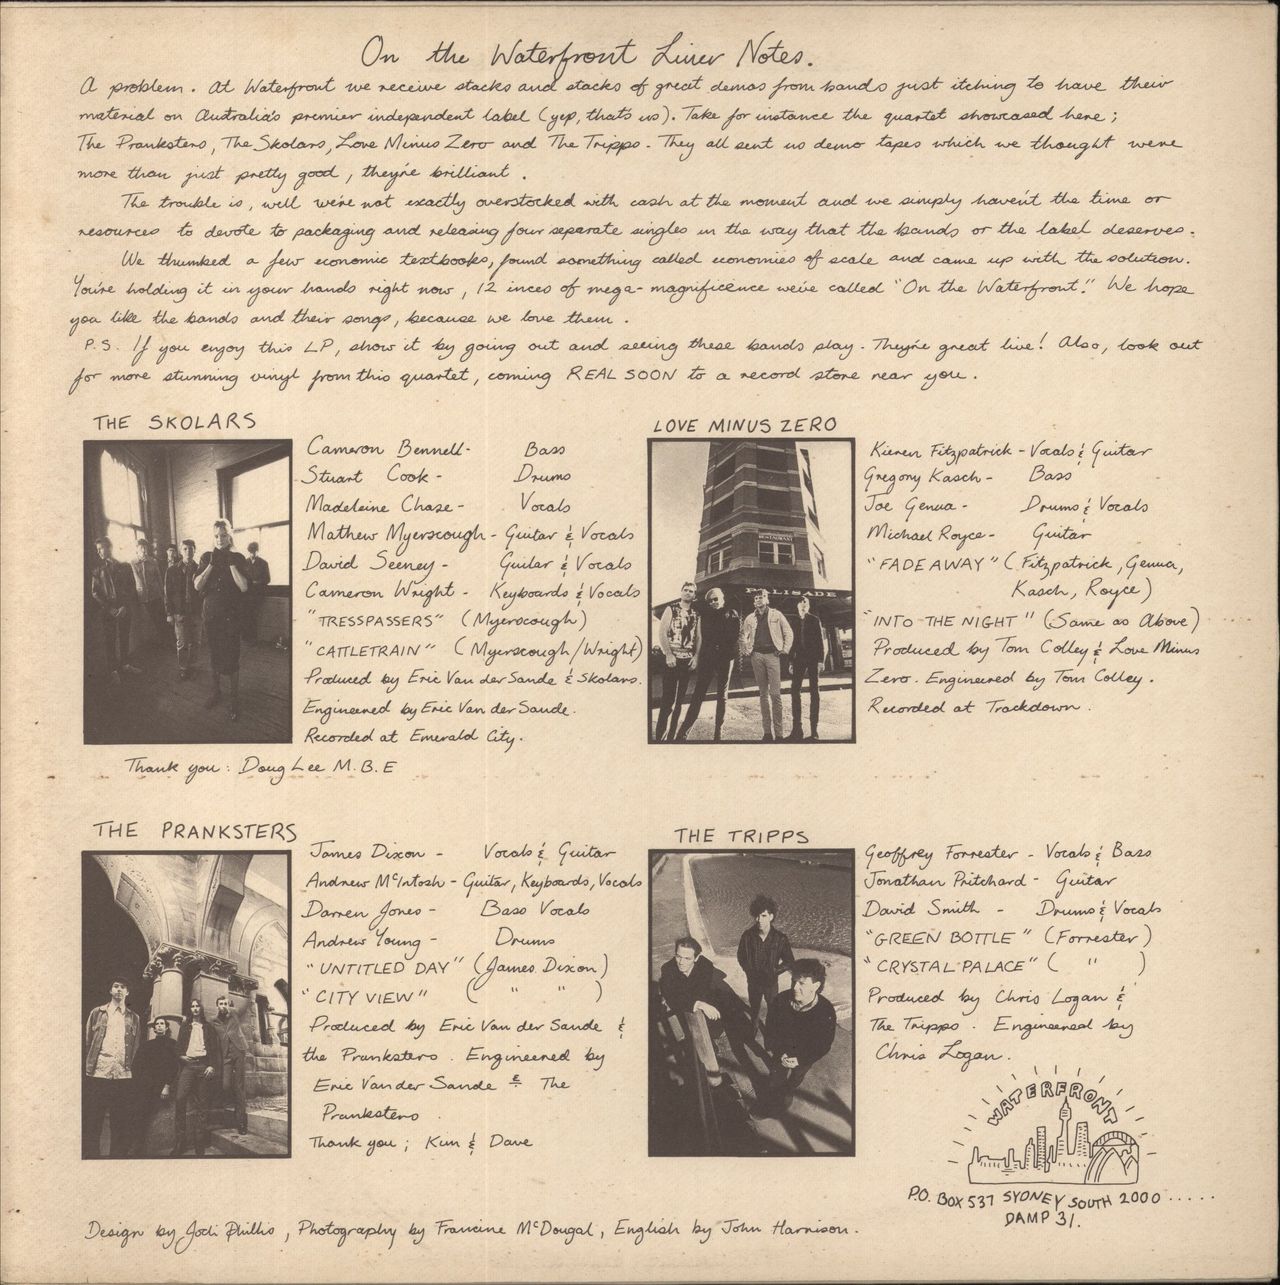 On the Waterfront Liner Notes.
A problem. At Waterfront we receive stacks and stacks of great demos from bands just itching to have their
material on Australia's premier independent label (yep, that's us). Take for instance the quartet showcased here;
The Pranksters, The Skolars, Love Minus Zero and The Tripps. They all sent us demo tapes which we thought were
more than just pretty good, they're brilliant.
The trouble is, well we're not exactly overstocked with cash at the moment and we simply haven't the time or
resources to devote to packaging and releasing four separate singles in the way that the bands or the label deserves.
We thumbed a few economic textbooks, found something called economies of scale and came up with the solution.
You're holding it in your hands right now, 12 inces of mega-magnificence we've called "On the Waterfront". We hope
you like the bands and their songs, because we love them.
P.S. If you enjoy this LP, show it by going out and seeing these bands play. They're great live! Also, look out
for more stunning vinyl from this quartet, coming REAL SOON to a record store near you.
THE SKOLARS
Cameron Bennell- Bass
Stuart Cook- Drums
Madeleine Chase- Vocals
Mathew Myerscough- Guitar & Vocals
David Seeney- Guitar & Vocals
Cameron Wright- Keyboards & Vocals
"TRESSPASSERS" (Myerscough)
"CATTLETRAIN" (Myerscough/Wright)
Produced by Eric Van der Sande & Skolars.
Engineered by Eric Van der Sande.
Recorded at Emerald City.
Thank you: Doug Lee M.B.E
LOVE MINUS ZERO
RESTAURANT
PALISADE
Kieren Fitzpatrick - Vocals & Guitar
Gregory Kasch - Bass
Joe Genua - Drums & Vocals
Michael Royce - Guitar
"FADEAWAY" (Fitzpatrick, Genua,
Kasch, Royce)
"INTO THE NIGHT" (Same as Above)
Produced by Tom Colley & Love Minus
Zero. Engineered by Tom Colley.
Recorded at Trackdown.
THE PRANKSTERS
James Dixon - Vocals & Guitar
Andrew McIntosh - Guitar, Keyboards, Vocals
Darren Jones - Bass Vocals
Andrew Young - Drums
"UNTITLED DAY" (James Dixon)
"CITY VIEW" ( " " )
Produced by Eric Van der Sande &
the Pranksters. Engineered by
Eric Van der Sande & The
Pranksters.
Thank you; Kim & Dave
THE TRIPPS
Geoffrey Forrester - Vocals & Bass
Jonathan Pritchard - Guitar
David Smith - Drums & Vocals
"GREEN BOTTLE" (Forrester)
"CRYSTAL PALACE" ( " )
Produced by Chris Logan &
The Tripps. Engineered by
Chris Logan.
WATERFRONT
P.O. BOX 537 SYDNEY SOUTH 2000.....
DAMP 31.
Design by Jodi Phillis, Photography by Francine McDougal, English by John Harrison.